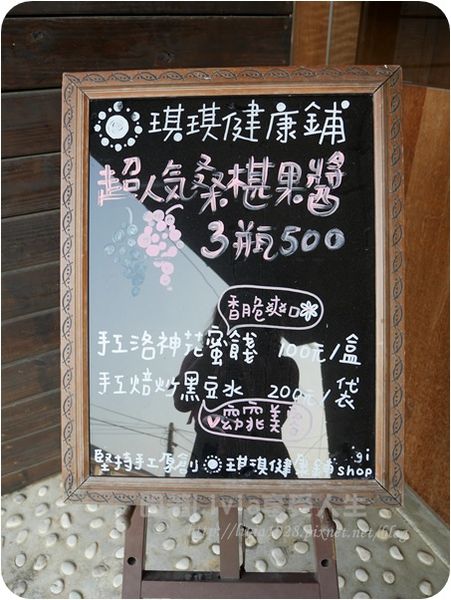 琪琪健康鋪
超人気桑椹果醬
3瓶500
香脆爽口
手工洛神花蜜餞 100元/盒
手工焙炒黑豆水 200元/袋
窈窕美
堅持手工原創 琪琪健康鋪 qi shop